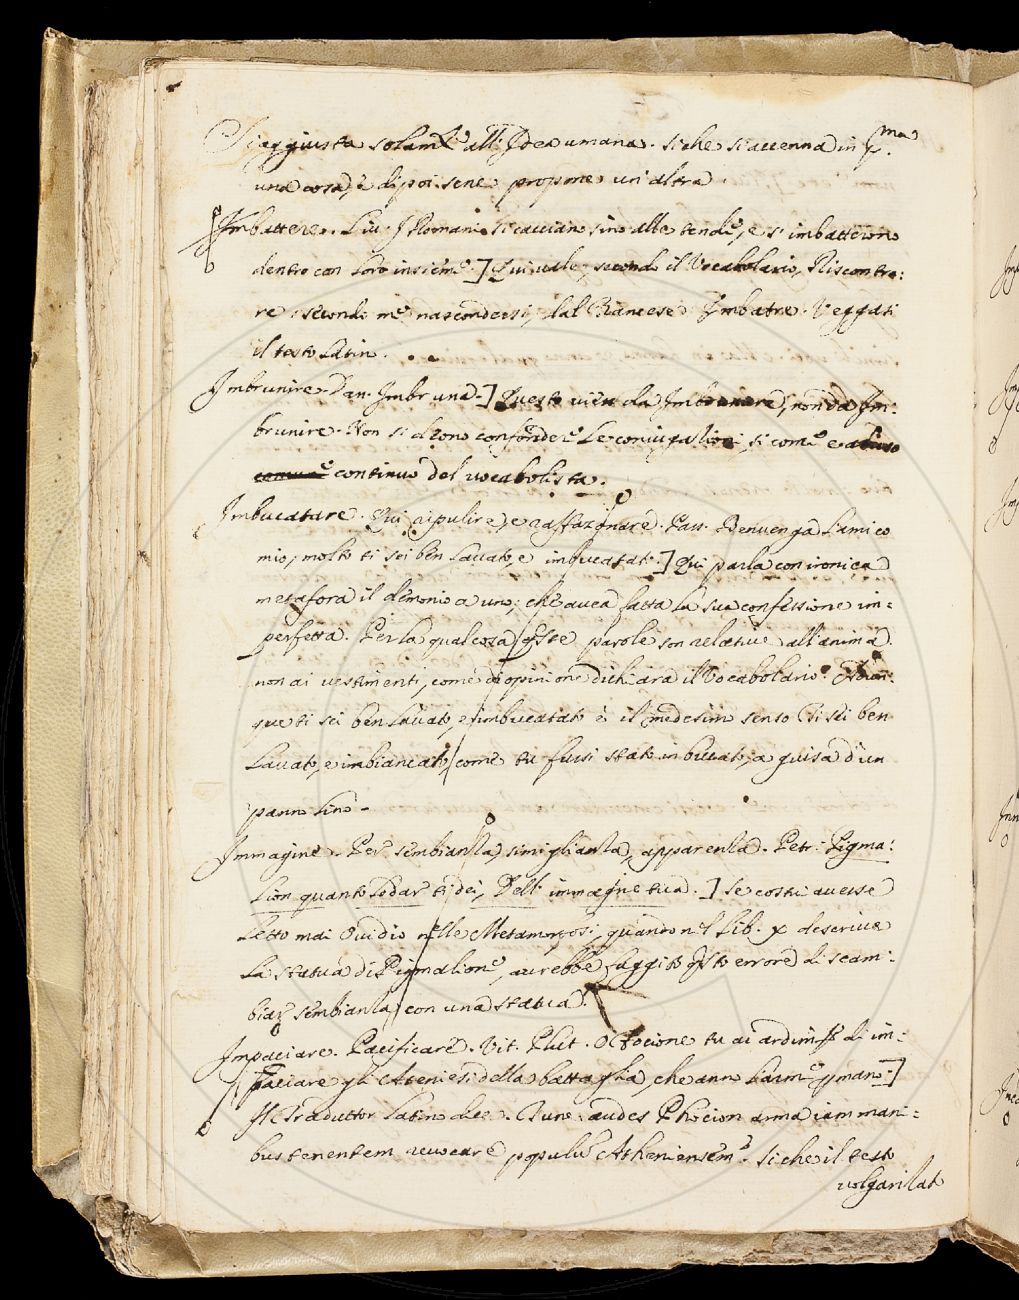 Si aggiusta solam.te all' Idea umana. siche si accenna in p.ma
una cosa, e dipoi sene propone un'altra.
Imbattere. Liv. I Romani si cacciano sino alle tende, e s'imbatterono
dentro con loro insieme.] Qui vale, secondo il Vocabolario, Riscontra:
re: secondo me nascondersi, dal Francese Imbatre. Veggasi
il testo Latin.
Imbrunire. Dan. Imbruna.] Questo vien da Imbrunare, non da Im:
brunire. Non si deono confonder le coniugazioni, si come e abuso
continuo del vocabolista.
Imbucatare. Qui ripulire, e raffazonare. Pass. Benvenga l'amico
mio, molto ti sei ben lavato, e imbucatat.] Qui parla con ironica
metafora il demonio a uno, che avea fatta la sua confessione im=
perfetta. Per la qual cosa queste parole son relative all'anima
non ai vestimenti, come di opinione dichiara il Vocabolario. Adun:
que ti sei ben lavato, e imbucatato è il medesim senso Ti sei ben
lavato, e imbiancato, come tu fussi stato in bucato, a guisa d'un
panno lino.
Immagine. Per sembianza, simiglianza, apparenza. Petr. Pigma:
lion quanto lodar ti dei, Dell' immagine tua.] Se costui avesse
letto mai Ovidio nelle Metamorfosi, quando nel Lib. x descrive
la statua di Pigmalione, avrebbe fuggito q.sto errore di scam:
biar sembianza con una statua.
Impaciare. Pacificare. Vit. Plut. O Focione tu ai ardim.to di im:
paciare gli Ateniesi della battaglia, che anno l'arme in mano.]
Il Traduttor Latino dice. Tune audes Phocion arma iam mani:
bus tenentem revocare populum Atheniensem? Siche il testo
volgarizat